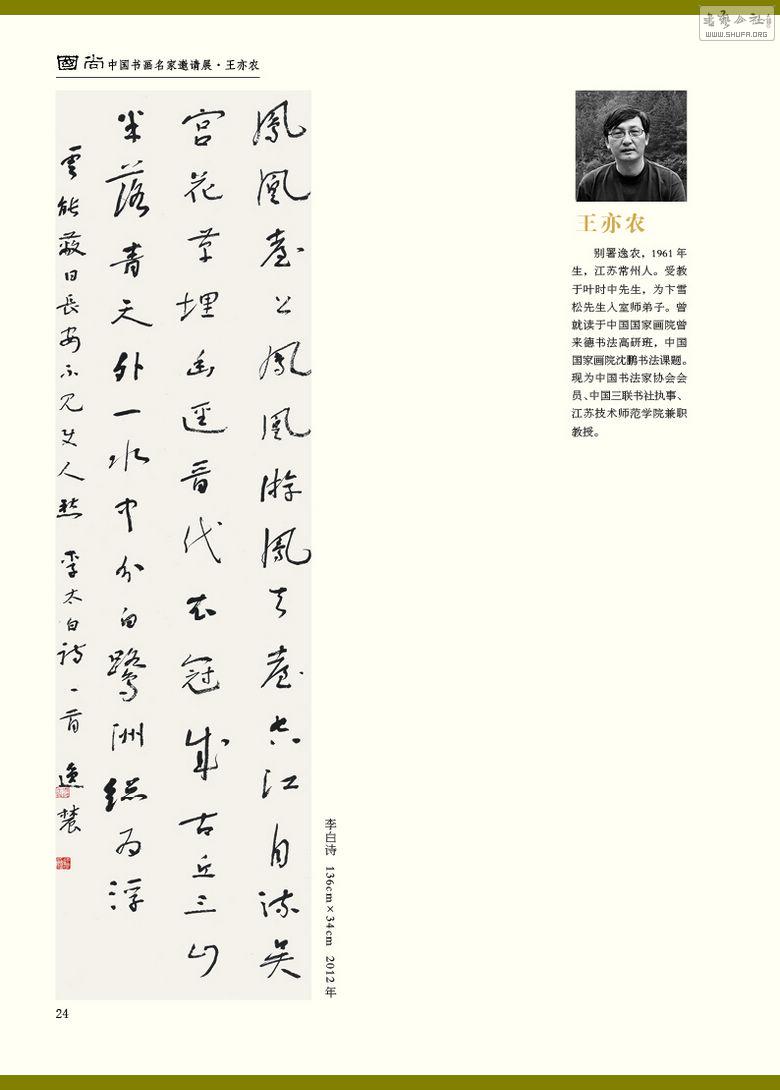 書藝公社
WWW.SHUFA.ORG
國尚 中国书画名家邀请展·王亦农
鳳凰臺上鳳凰游鳳去臺空江自流吳
宮花草埋幽逕晉代衣冠成古丘三山
半落青天外一水中分白鷺洲総為浮
雲能蔽日長安不見使人愁 李太白詩一首 逸農
李白诗 136cm×34cm 2012年
王亦农
别署逸农，1961年
生，江苏常州人。受教
于叶时中先生，为卞雪
松先生入室师弟子。曾
就读于中国国家画院曾
来德书法高研班，中国
国家画院沈鹏书法课题。
现为中国书法家协会会
员、中国三联书社执事、
江苏技术师范学院兼职
教授。
24